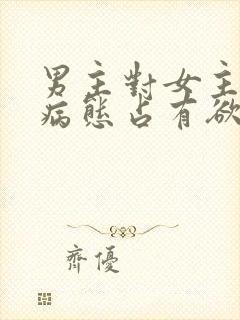 男主對女主
病態占有欲
齊優